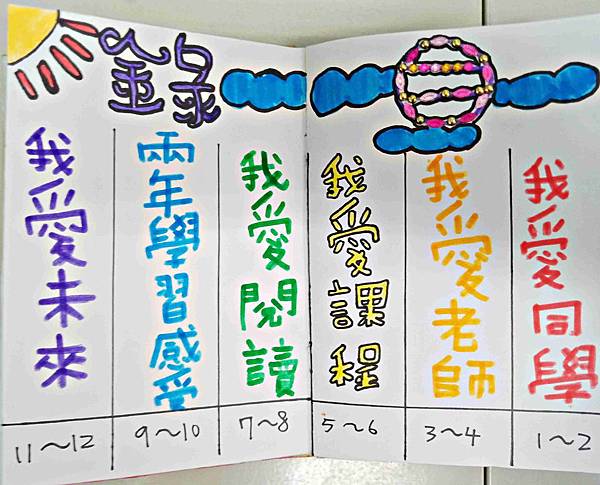 目錄
我愛同學
1~2
我愛老師
3~4
我愛課程
5~6
我愛閱讀
7~8
兩年學習感受
9~10
我愛未來
11~12